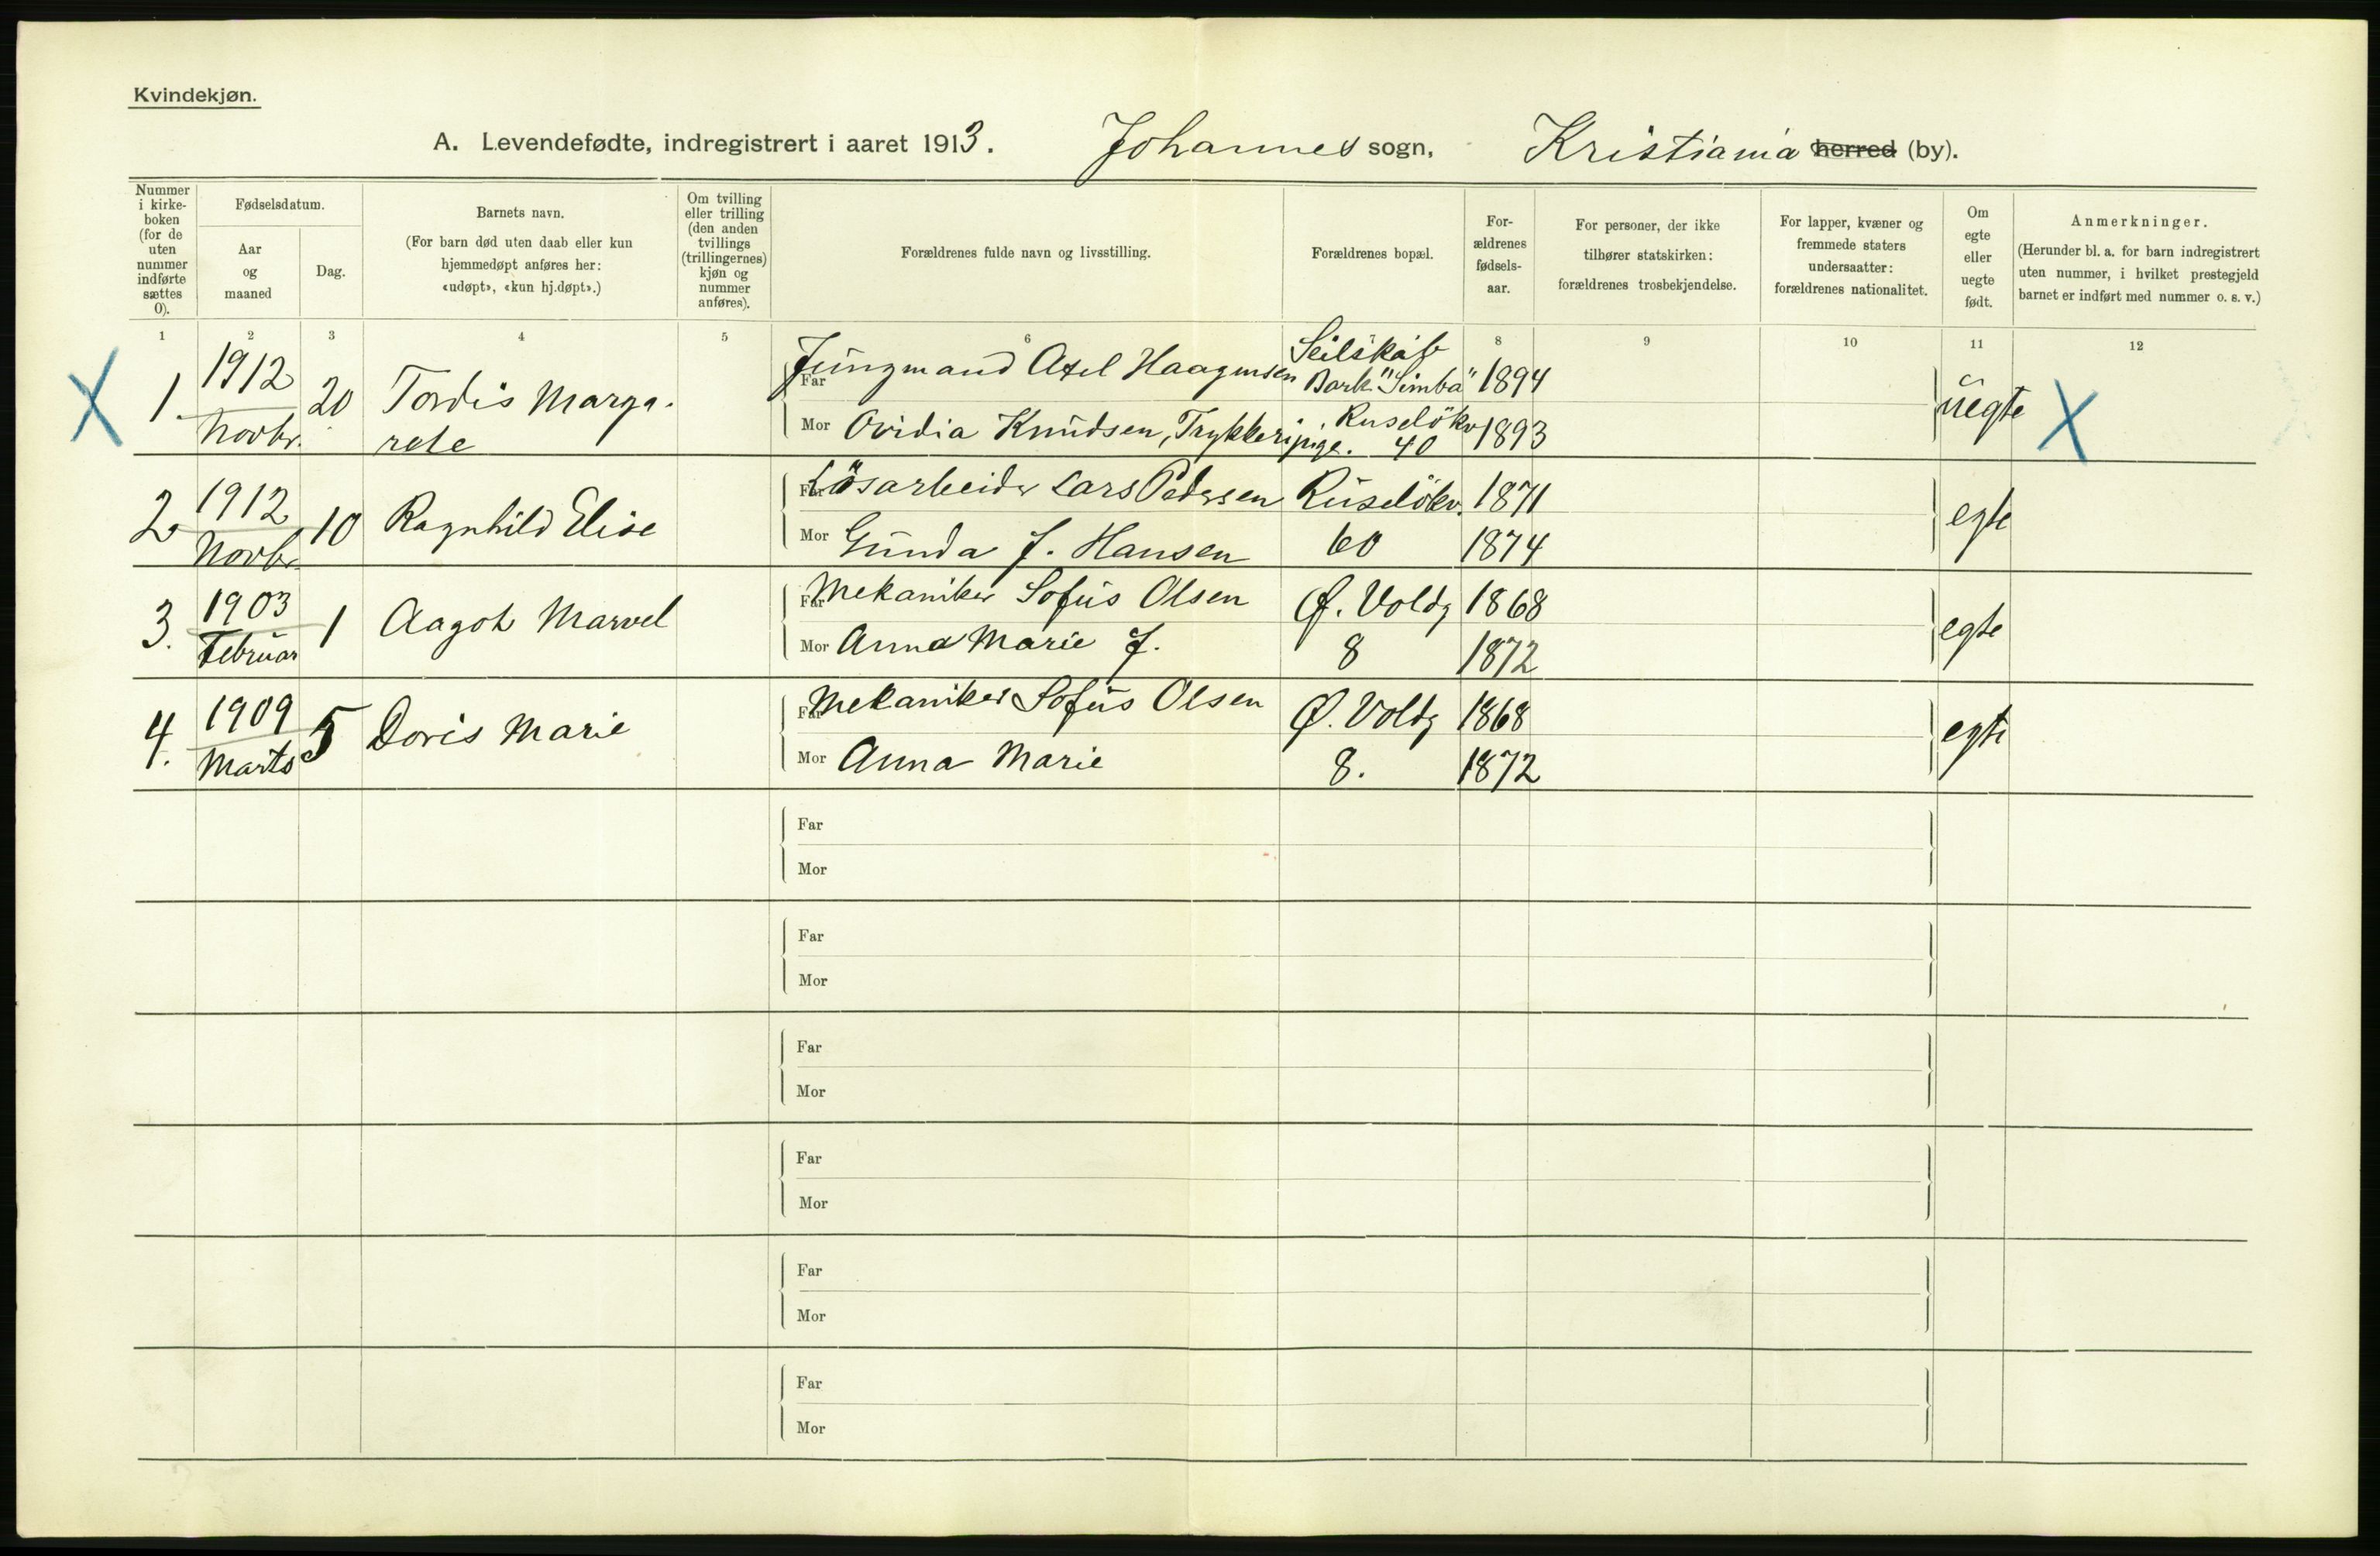 Kvindekjøn.
A. Levendefødte, indregistrert i aaret 1913. Johannes sogn, Kristiania herred (by).
Nummer i kirke-boken (for de uten nummer indførte sættes 0).
Fødselsdatum.
Aar og maaned
Dag.
Barnets navn.
(For barn død uten daab eller kun hjemmedøpt anføres her: «udøpt», «kun hj.døpt».)
Om tvilling eller trilling (den anden tvillings (trillingernes) kjøn og nummer anføres).
Forældrenes fulde navn og livsstilling.
Forældrenes bopæl.
For-ældrenes fødsels-aar.
For personer, der ikke tilhører statskirken: forældrenes trosbekjendelse.
For lapper, kvæner og fremmede staters undersaatter: forældrenes nationalitet.
Om egte eller uegte født.
Anmerkninger.
(Herunder bl. a. for barn indregistrert uten nummer, i hvilket prestegjeld barnet er indført med nummer o. s. v.)
1 2 3 4 5 6 8 9 10 11 12
X 1. 1912 Novbr. 20 Tordis Marga-rete
Far Jungmand Axel Haagensen Seilskib Bark "Simba" 1894
Mor Ovidia Knudsen, Trykkeripige. Ruseløkv 40 1893 uegte X
2. 1912 Novbr. 10 Ragnhild Elise
Far Løsarbeider Lars Pedersen Ruseløkv. 1871
Mor Gunda J. Hansen 60 1874 egte
3. 1903 Februar 1 Aagot Marvel
Far Mekaniker Sofus Olsen Ø. Voldg 1868
Mor Anna Marie J. 8 1872 egte
4. 1909 Marts 5 Doris Marie
Far Mekaniker Sofus Olsen Ø. Voldg 1868
Mor Anna Marie 8. 1872 egte
Far
Mor
Far
Mor
Far
Mor
Far
Mor
Far
Mor
Far
Mor